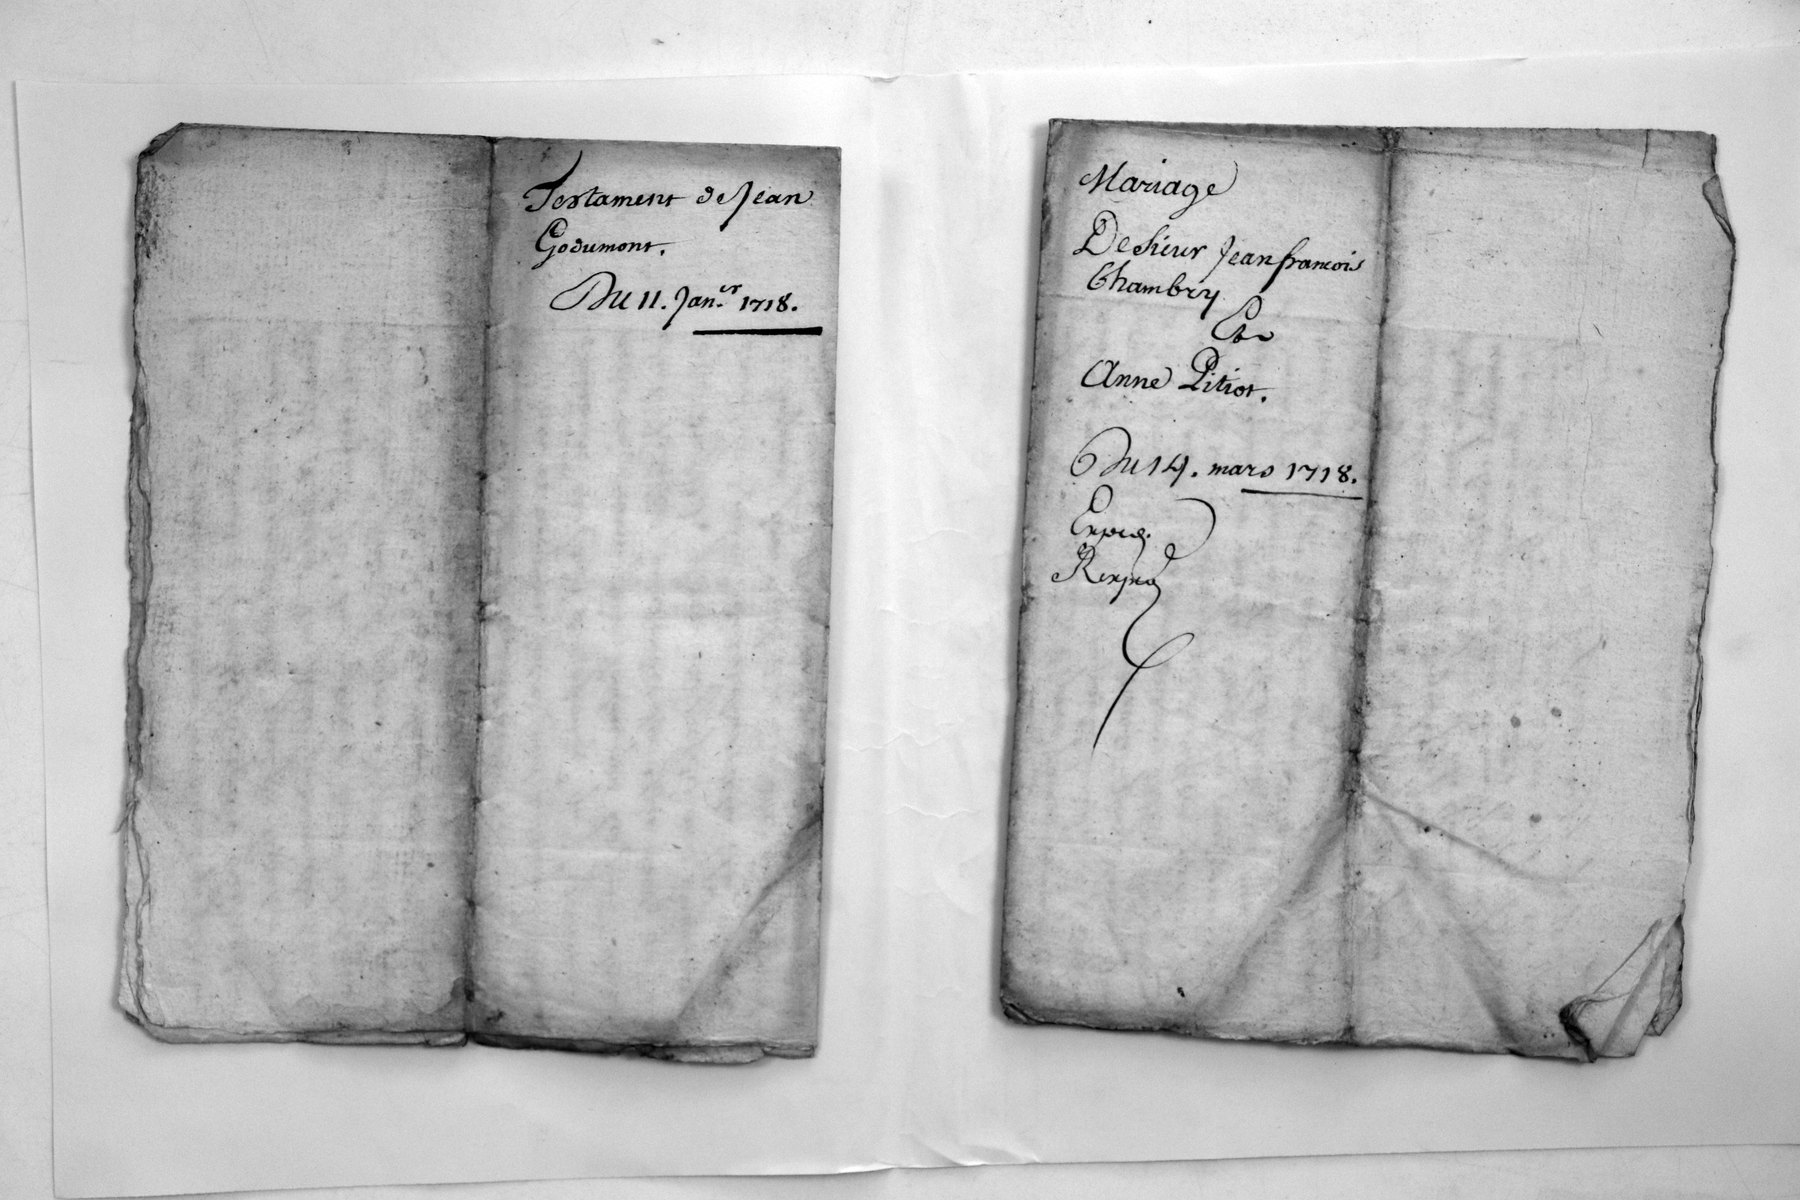 Testament de Jean
Godumont.
Du 11. Jan.er 1718.
Mariage
De Sieur Jean francois
Chambry
Et
Anne Pitiot.
Du 14. mars 1718.
Exped.